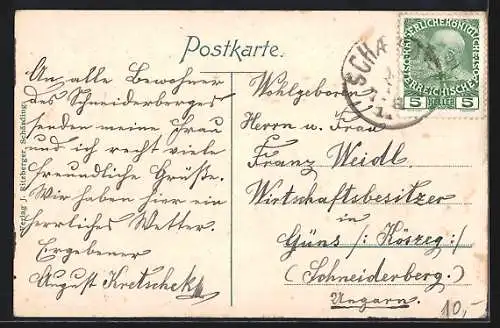 Postkarte.
An alle Bewohner
des Schneiderberges
senden meine Frau
und ich recht viele
freundliche Grüße.
Wir haben hier ein
herrliches Wetter.
Ergebener
August Kretschek
Wohlgeboren
Herrn u. Frau
Franz Weidl.
Wirtschaftsbesitzer
in
Güns /: Köszeg :/
(Schneiderberg.)
Ungarn.
10,-
Verlag J. Rieberger, Schärding.
SCHÄ
5 HELLER 5